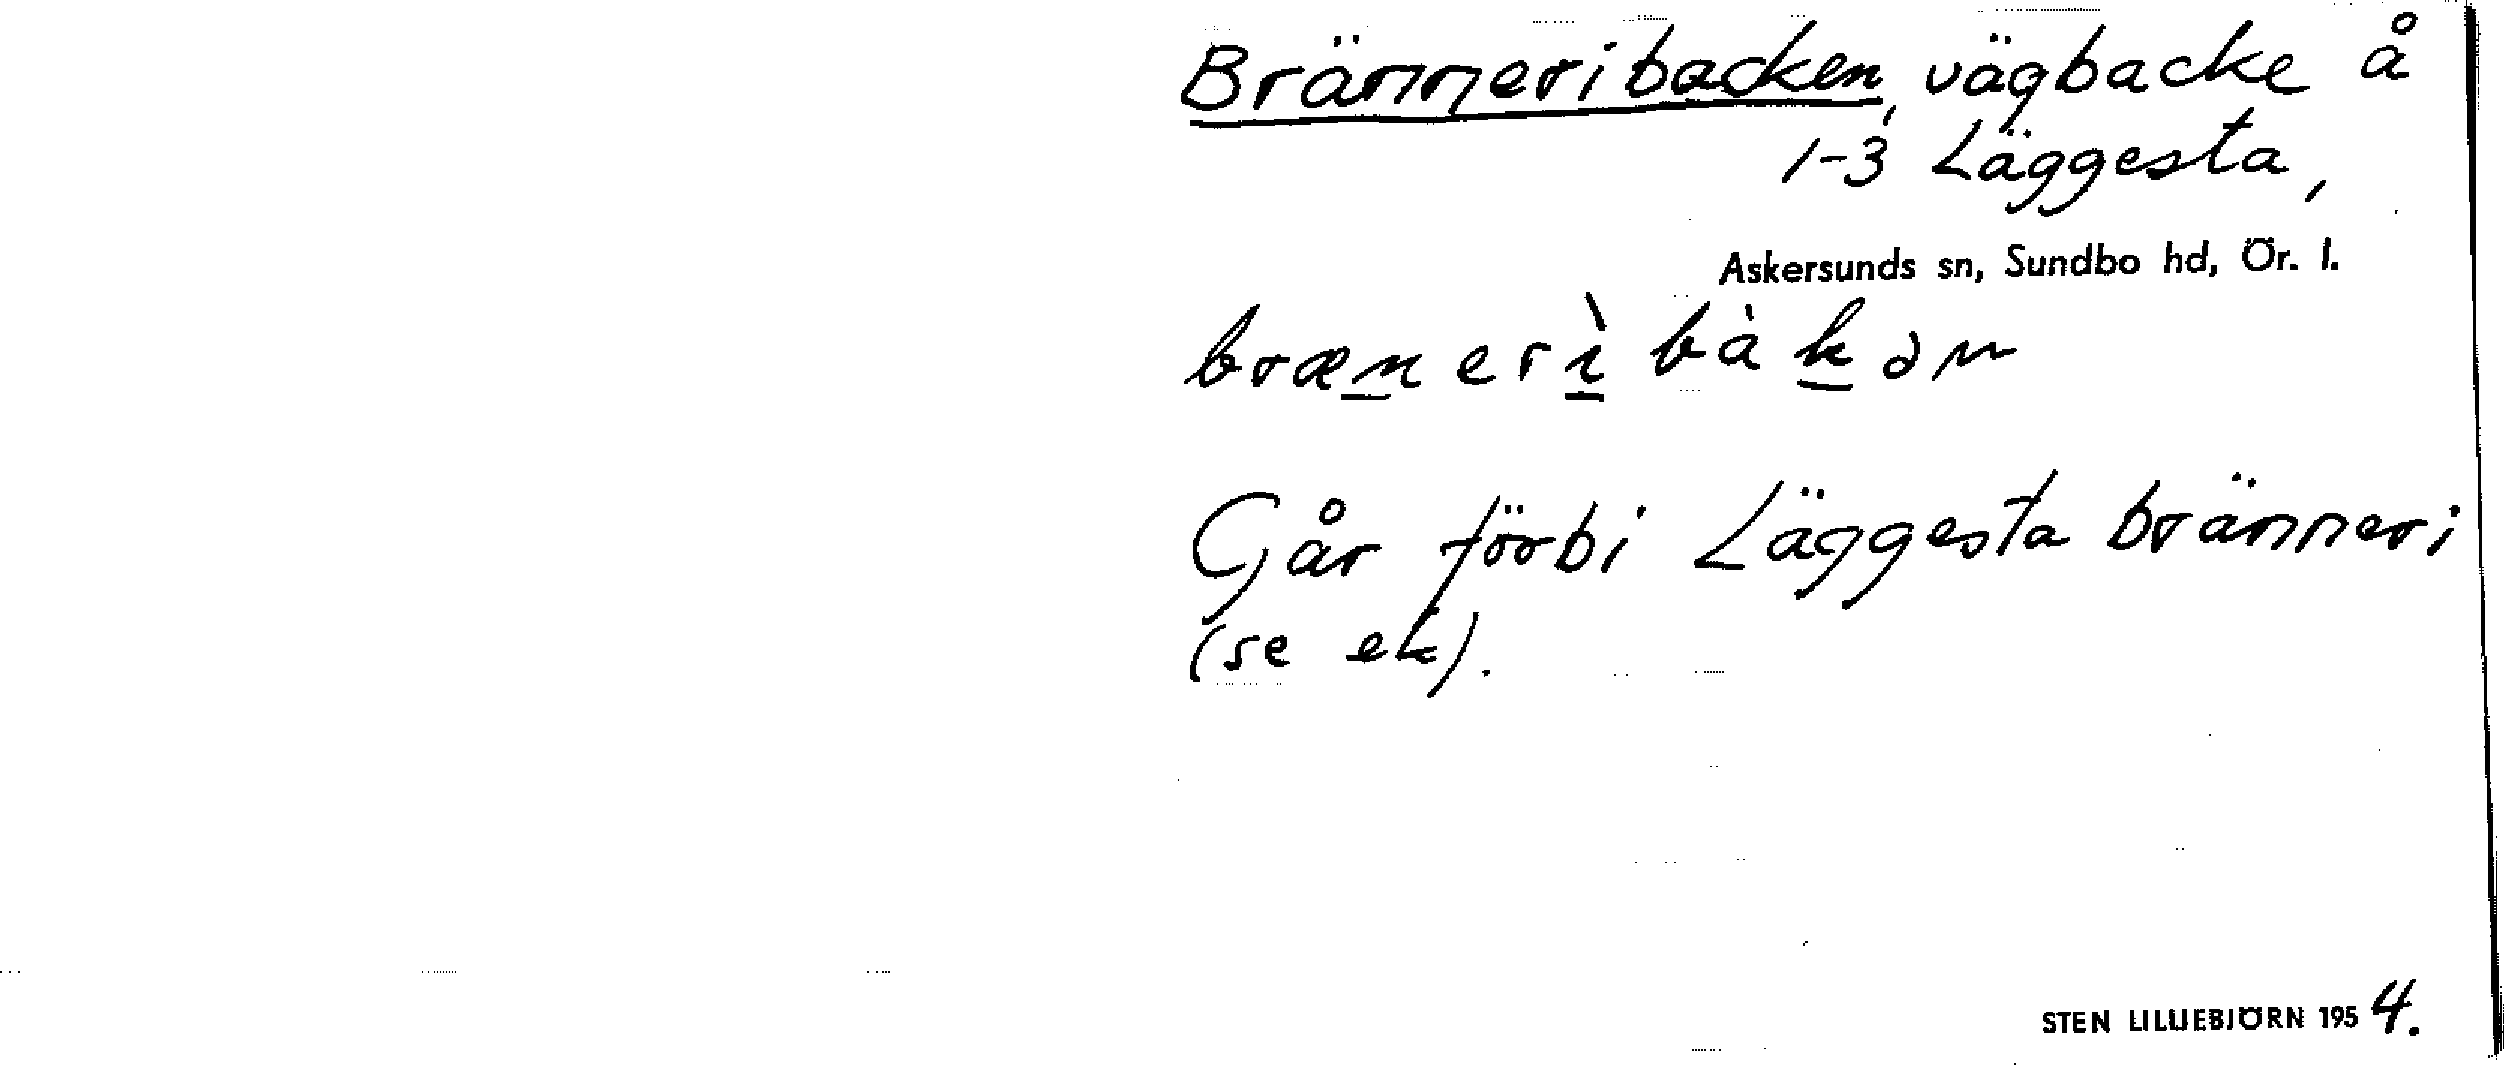 Bränneribacken, vägbacke å
1-3 Läggesta,
Askersunds sn, Sundbo hd, Ör. l.
brænerì̠bàk̠ən
Går förbi Läggesta bränneri
(se ek).
STEN LILLIEBJÖRN 1954.